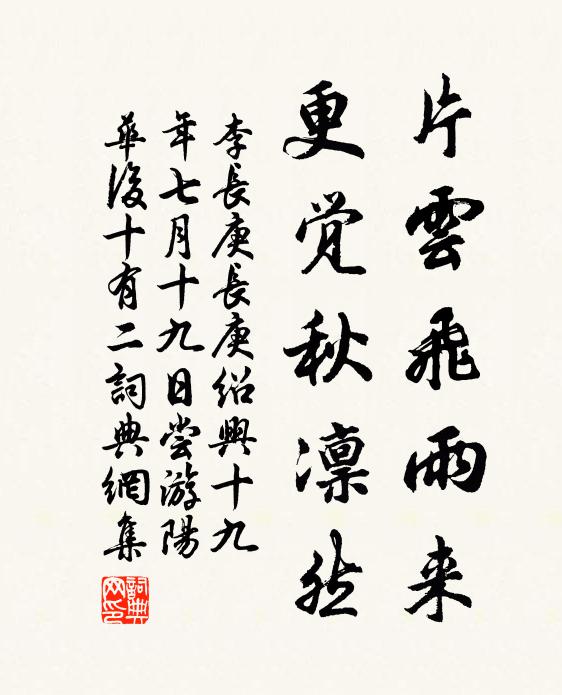 片雲飛雨来
更覚秋凛然
李長庚長庚紹興十九
年七月十九日尝游陽
華後十有二詞典網集
詞典網印